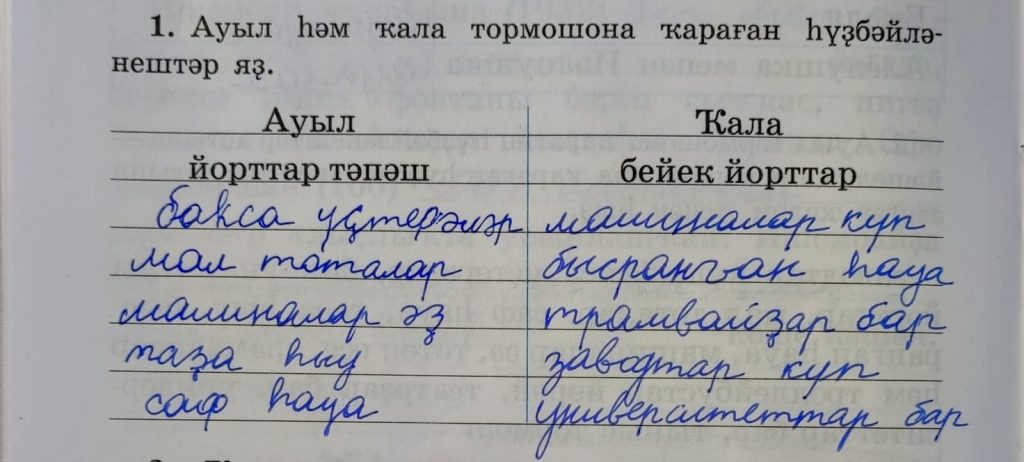 1. Ауыл һәм ҡала тормошона ҡараған һүҙбәйлә-
нештәр яҙ.
Ауыл Ҡала
йорттар тәпәш бейек йорттар
баҡса үҫтерәләр машиналар күп
мал тоталар бысранған һауа
машиналар әҙ трамвайҙар бар
таҙа һыу заводтар күп
саф һауа университеттар бар